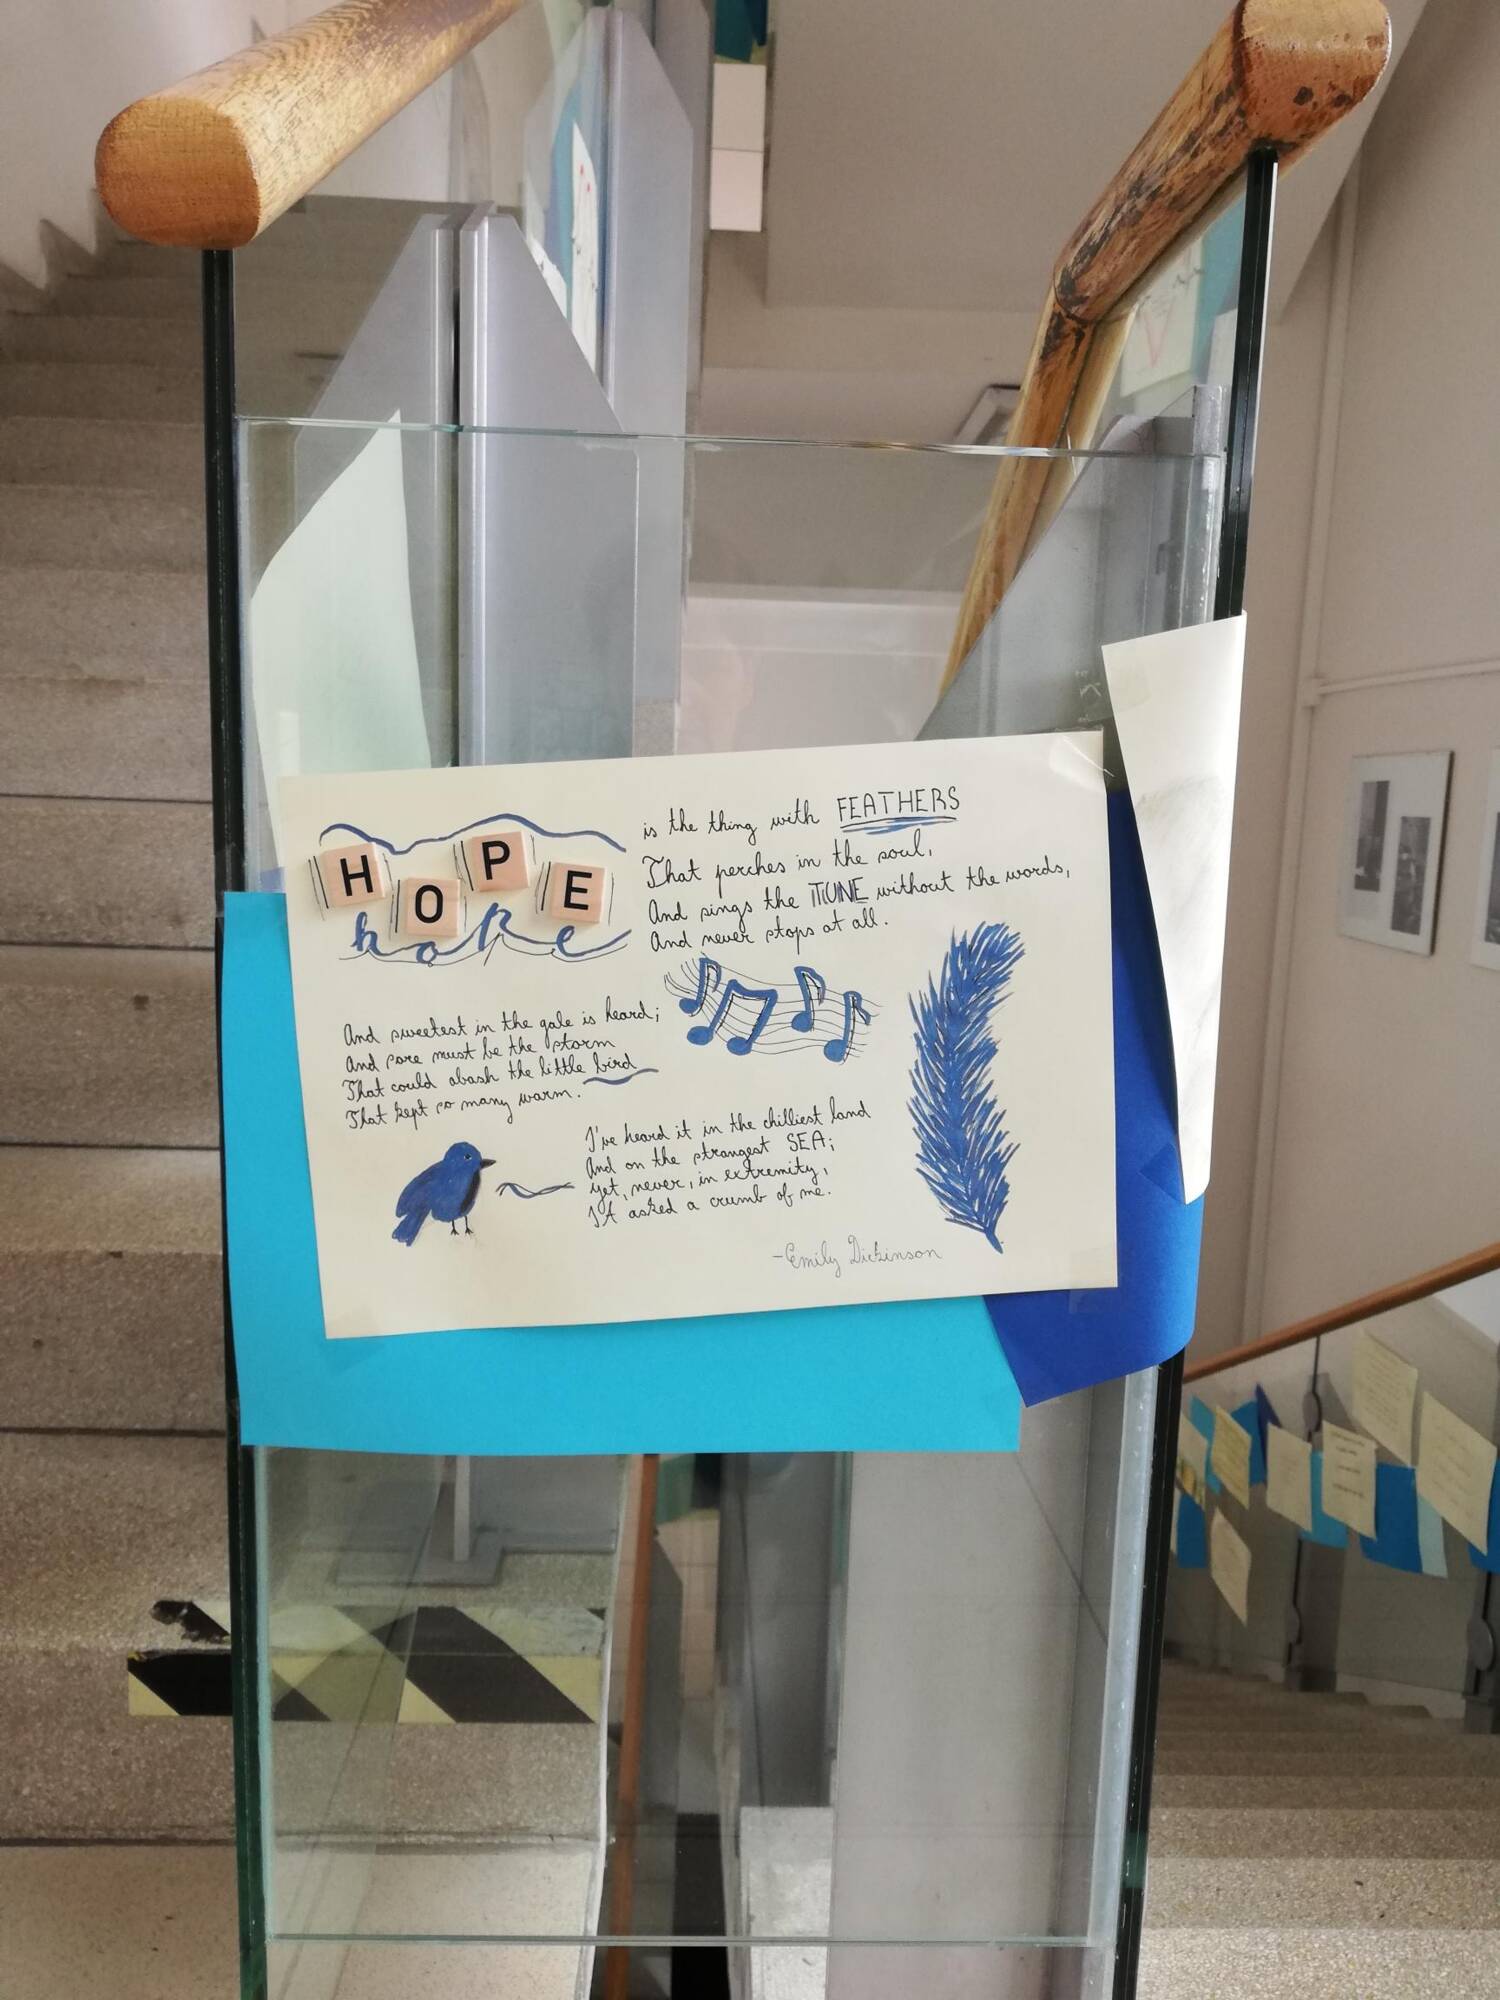 HOPE
hope
is the thing with FEATHERS
That perches in the soul,
And sings the TUNE without the words,
And never stops at all.
And sweetest in the gale is heard;
And sore must be the storm
That could abash the little bird
That kept so many warm.
I've heard it in the chilliest land
And on the strangest SEA;
yet, never, in extremity,
It asked a crumb of me.
-Emily Dickinson